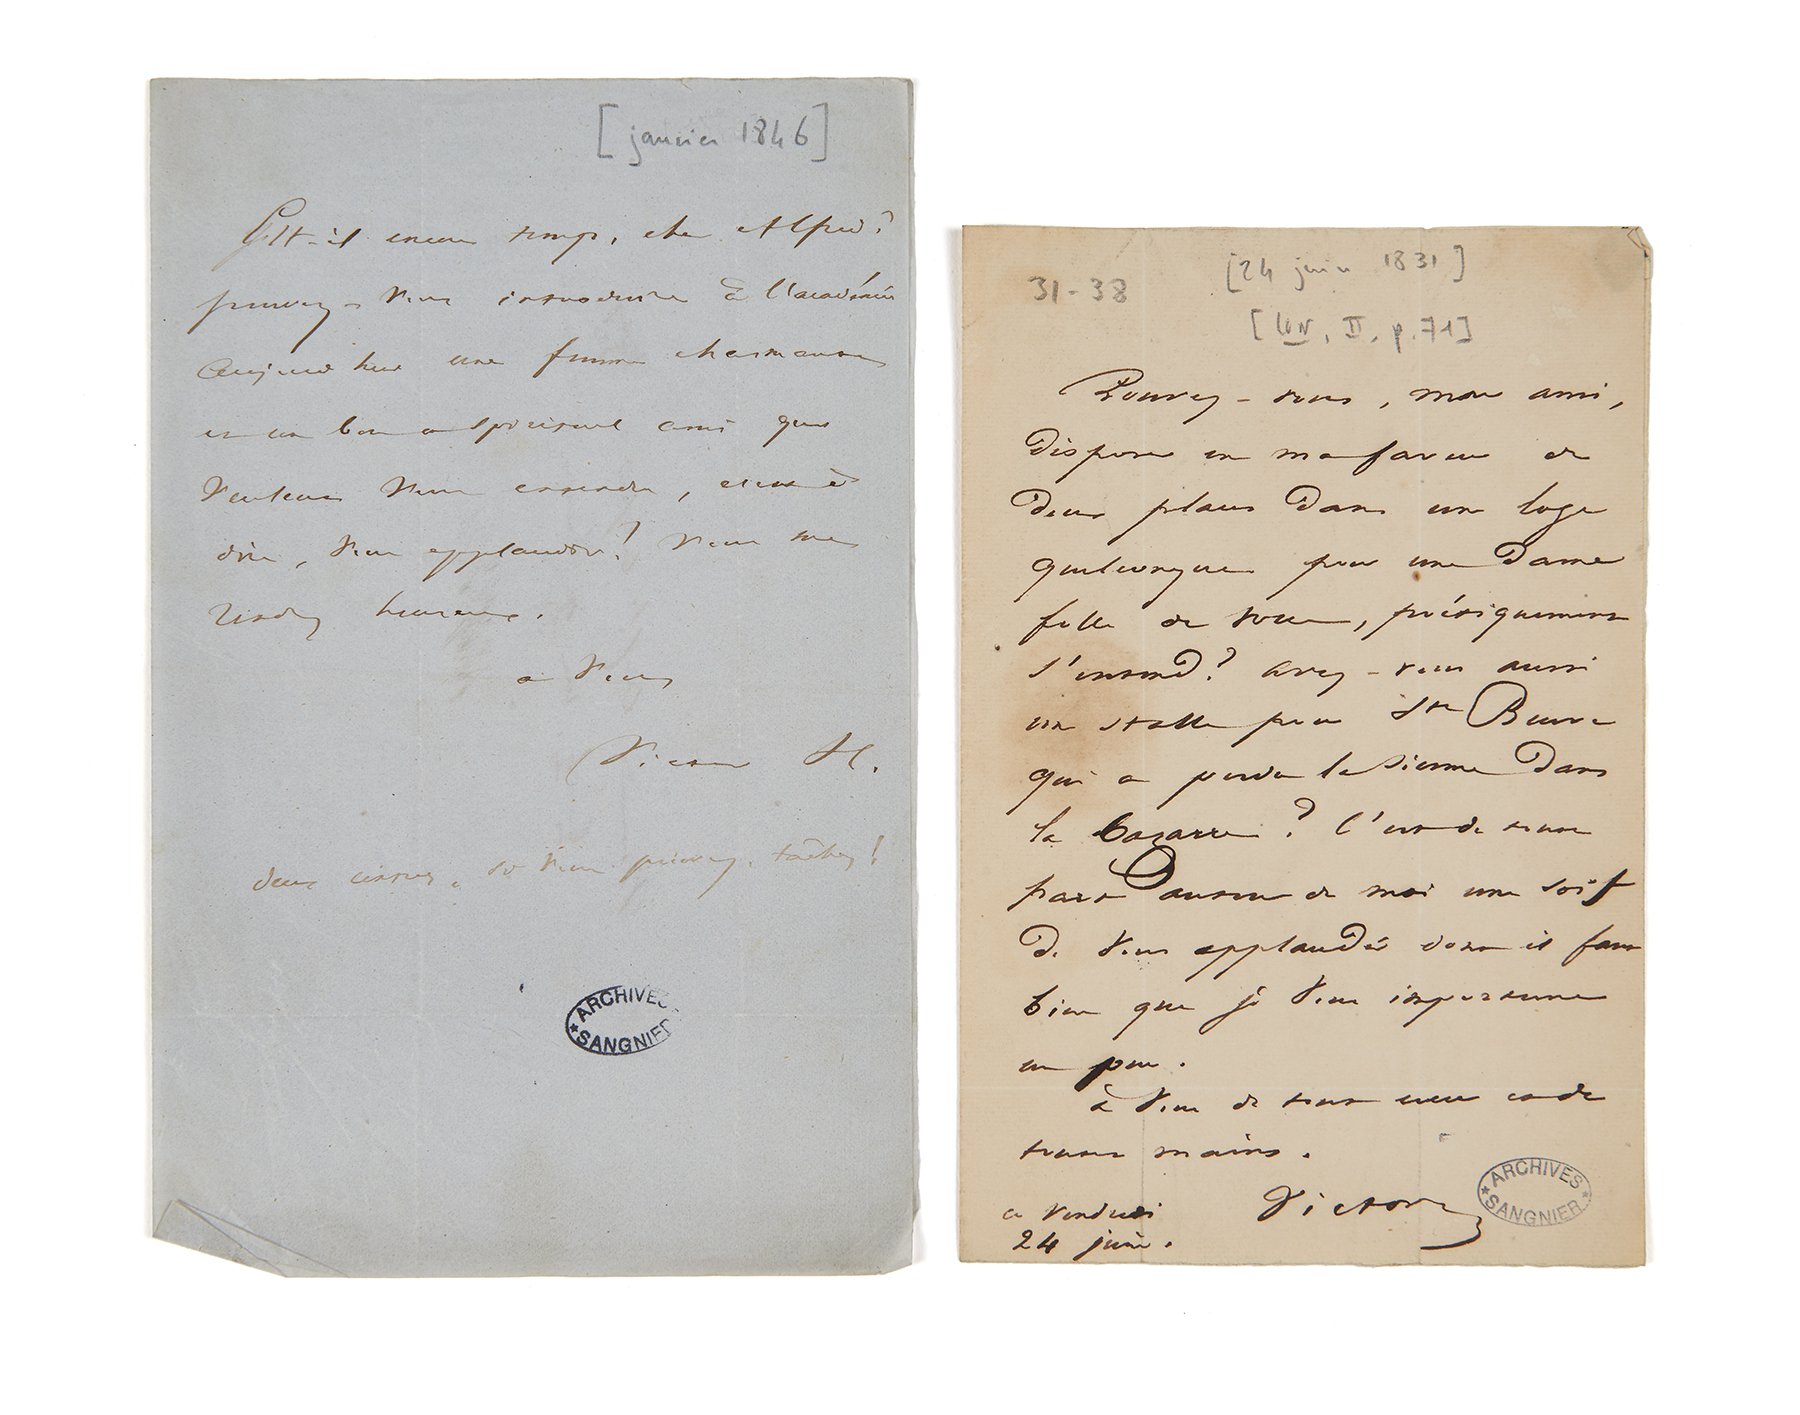 [janvier 1846]
Est-il encore temps, cher Alfred?
pouvez-vous introduire à l'académie
aujourd'hui une femme charmante
et un bon et spirituel ami qui
veulent vous entendre, c'est à
dire, vous applaudir? vous me
rendrez heureux.
à vous
Victor H.
deux entrées, si vous pouvez. tâchez!
ARCHIVES
SANGNIER
31-38
[24 juin 1831]
[II, p. 71]
Pouvez-vous, mon ami,
disposer en ma faveur de
deux places dans une loge
quelconque pour une dame
folle de vous, poétiquement
s'entend? avez-vous aussi
une stalle pour Ste Beuve
qui a perdu la sienne dans
la bagarre? C'est de toute
part autour de moi une soif
de vous applaudir dont il faut
bien que je vous importune
un peu.
à vous de tout cœur et de
toutes mains.
Victor
ce vendredi
24 juin.
ARCHIVES
SANGNIER